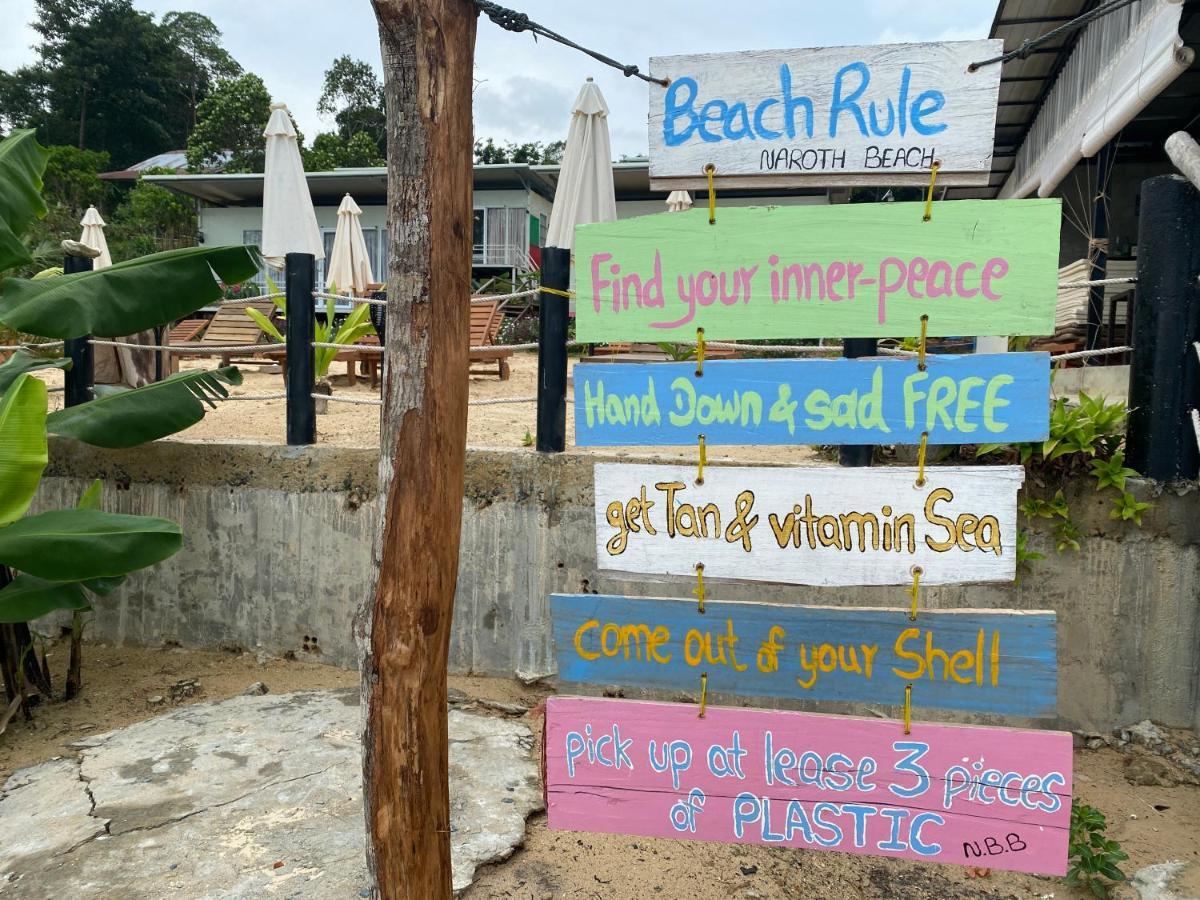 Beach Rule
NAROTH BEACH
Find your inner-peace
Hand Down & sad FREE
get Tan & vitamin Sea
come out of your Shell
pick up at lease 3 pieces
of PLASTIC
N.B.B